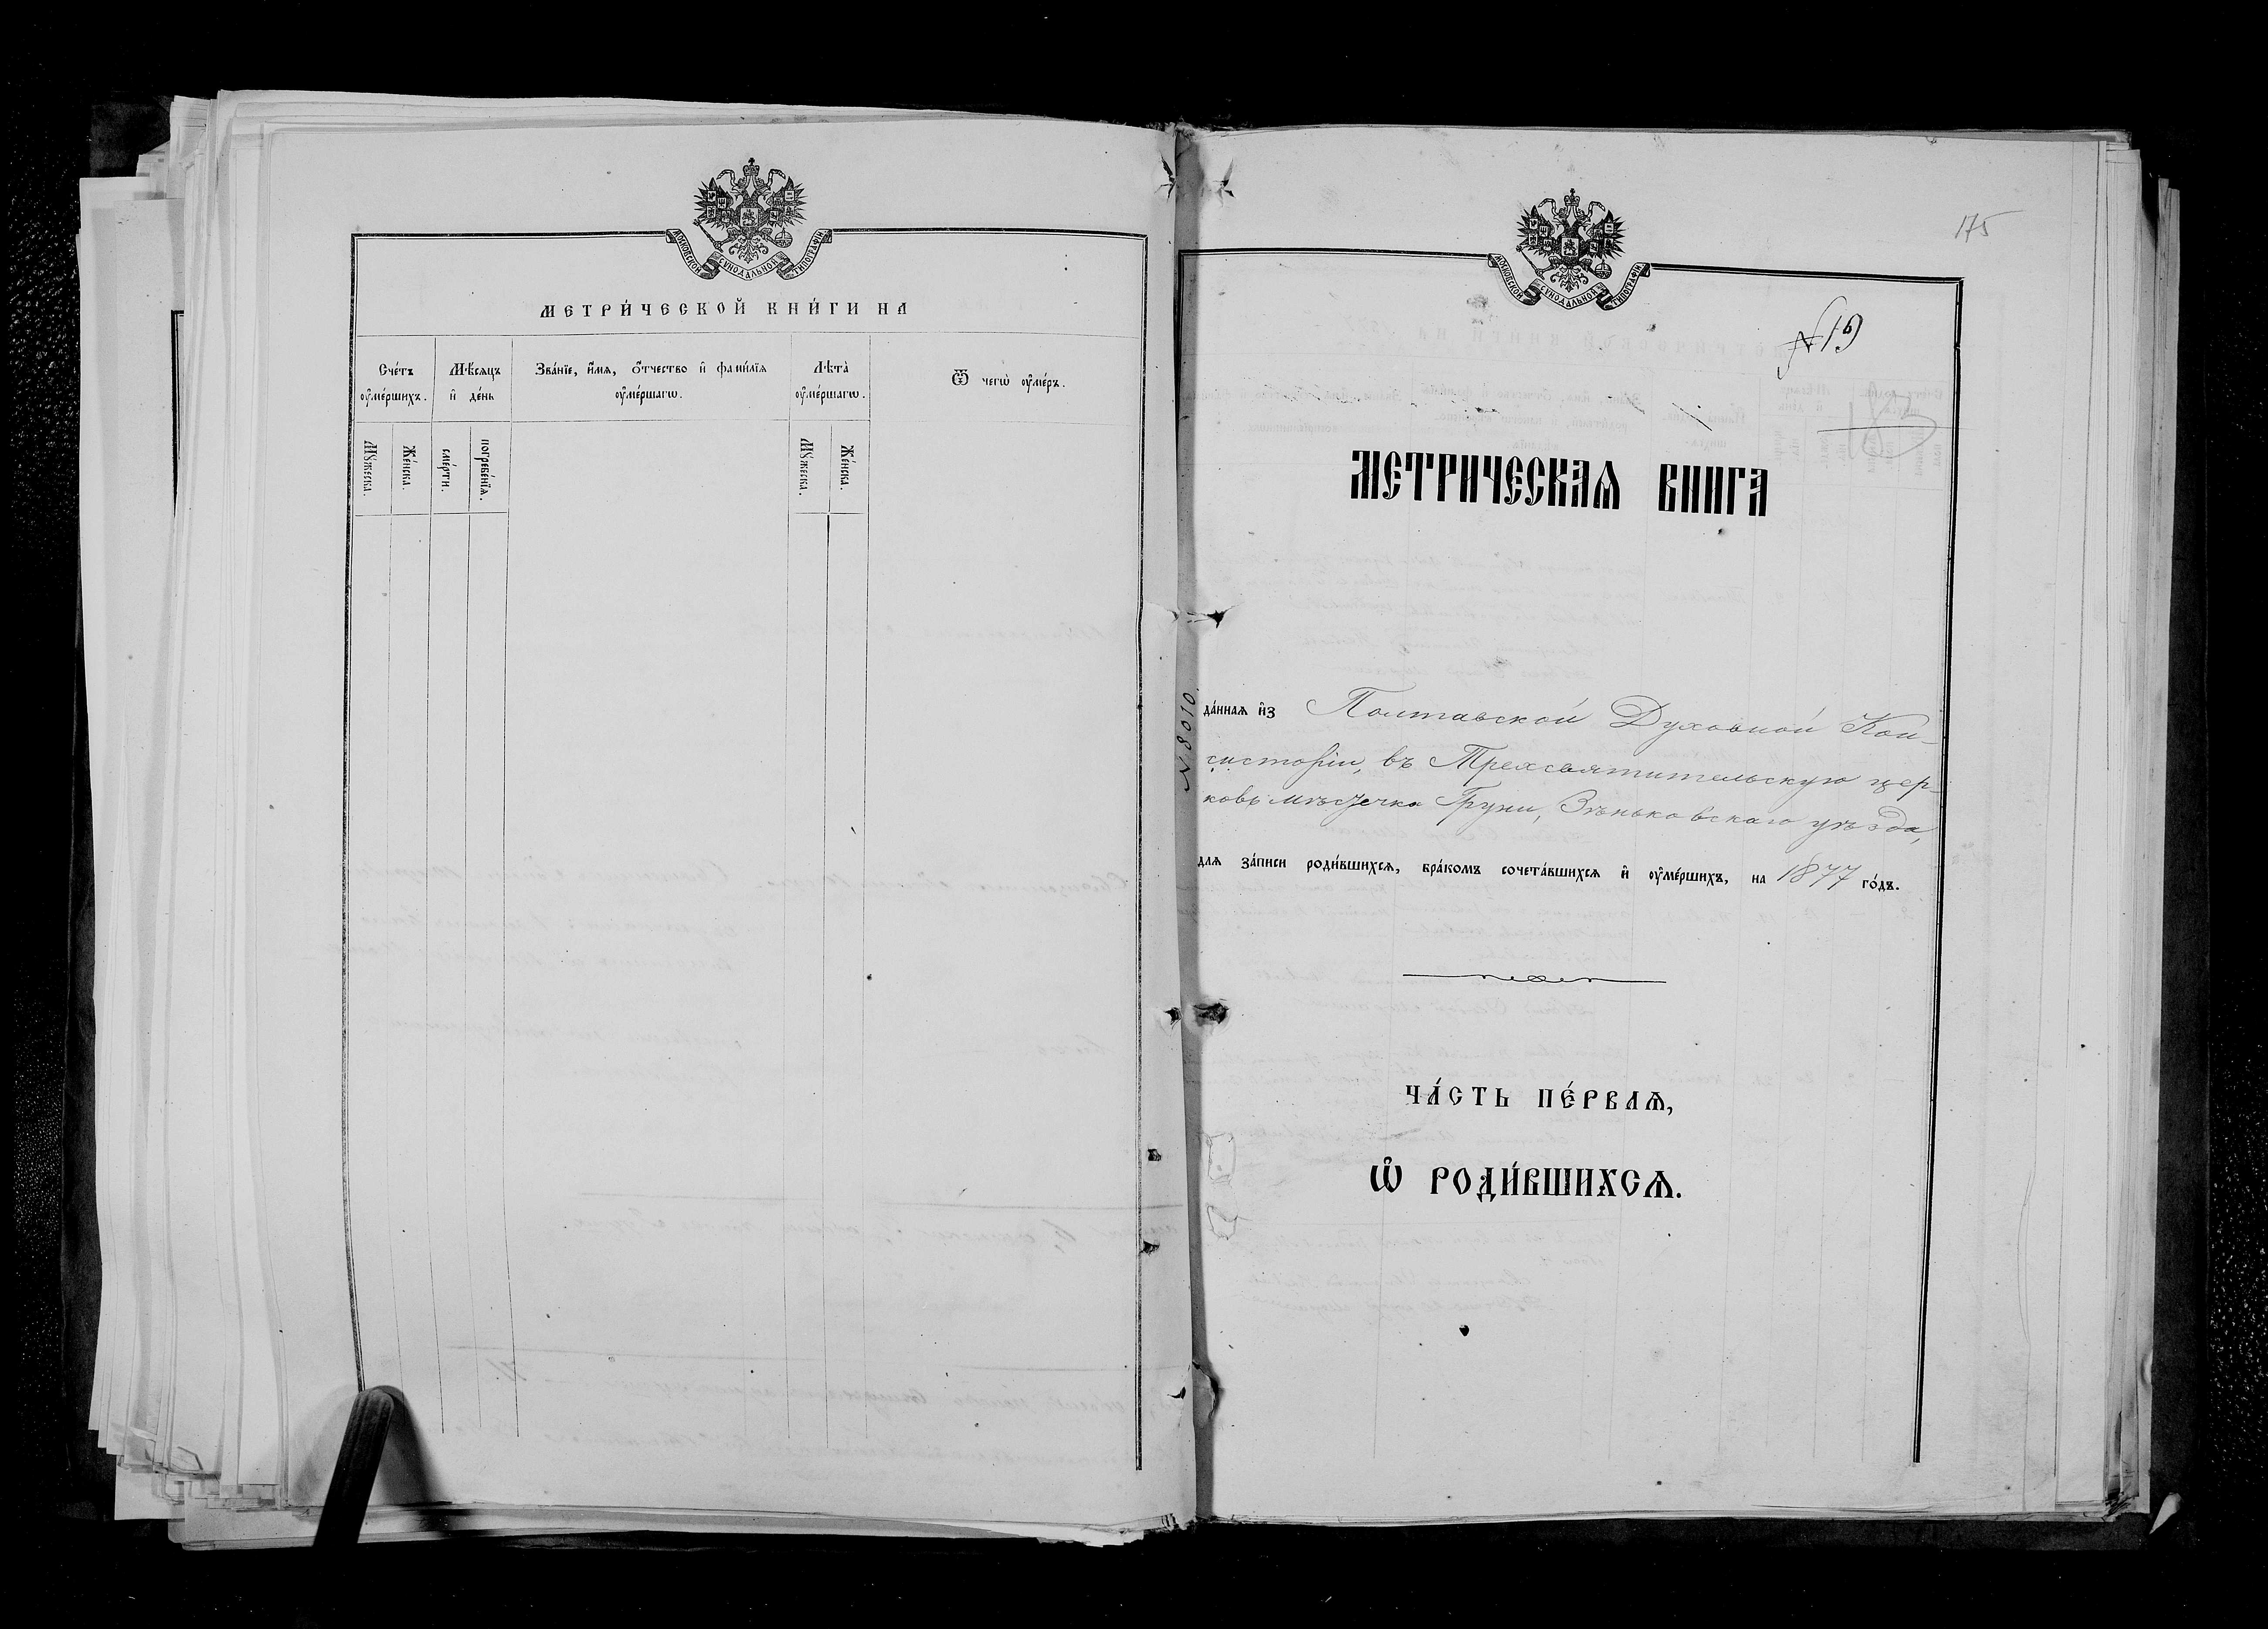 МОСКОВСКОЙ СУНОДАЛЬНОЙ ТИПОГРАФІИ
МЕТРИ́ЧЕСКОЙ КНИ́ГИ НА
Сче́тъ ᲂу҆ме́ршихъ.
Мѣ́сѧцъ и҆ де́нь
Зва́нїе, и҆́мѧ, ѻ҆́тчество и҆ фами́лїѧ
ᲂу҆ме́ршагѡ.
Лѣта̀ ᲂу҆ме́ршагѡ.
Ѿ чегѡ̀ ᲂу҆ме́ръ.
Мꙋ́жеска.
Же́нска.
сме́рти.
погребе́нїѧ.
Мꙋ́жеска.
Же́нска.
175
МОСКОВСКОЙ СУНОДАЛЬНОЙ ТИПОГРАФІИ
№19
МЕТРИЧЕСКАѦ КНИГА
№ 8010.
да́ннаѧ и҆з Полтавской Духовной Кон-
систоріи, въ Трехсвятительскую цер-
ковь мѣстечка Груни, Зѣньковскаго уѣзда,
для за́писи роди́вшихсѧ, бра́комъ сочета́вшихсѧ и҆ ᲂу҆ме́ршихъ, на 1877 го́дъ.
ЧА́СТЬ ПЕ́РВАѦ,
Ѡ҆ РОДИ́ВШИХСѦ.